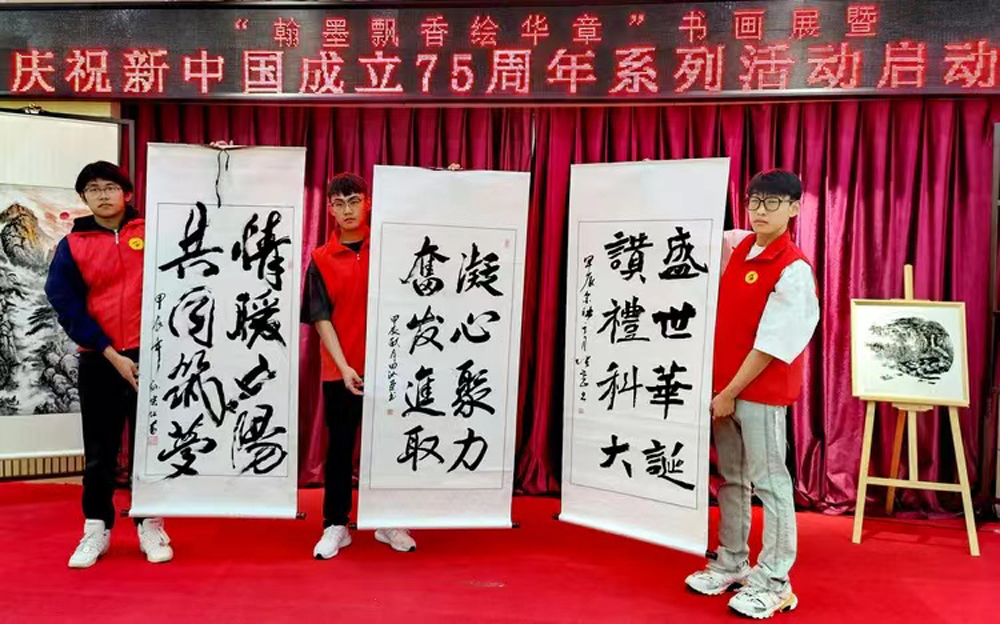 “翰墨飘香绘华章”书画展暨
庆祝新中国成立75周年系列活动启动
情暖夕陽
共同筑夢
甲辰年
凝心聚力
奮发進取
甲辰秋月
盛世華誕
讚禮科大
甲辰